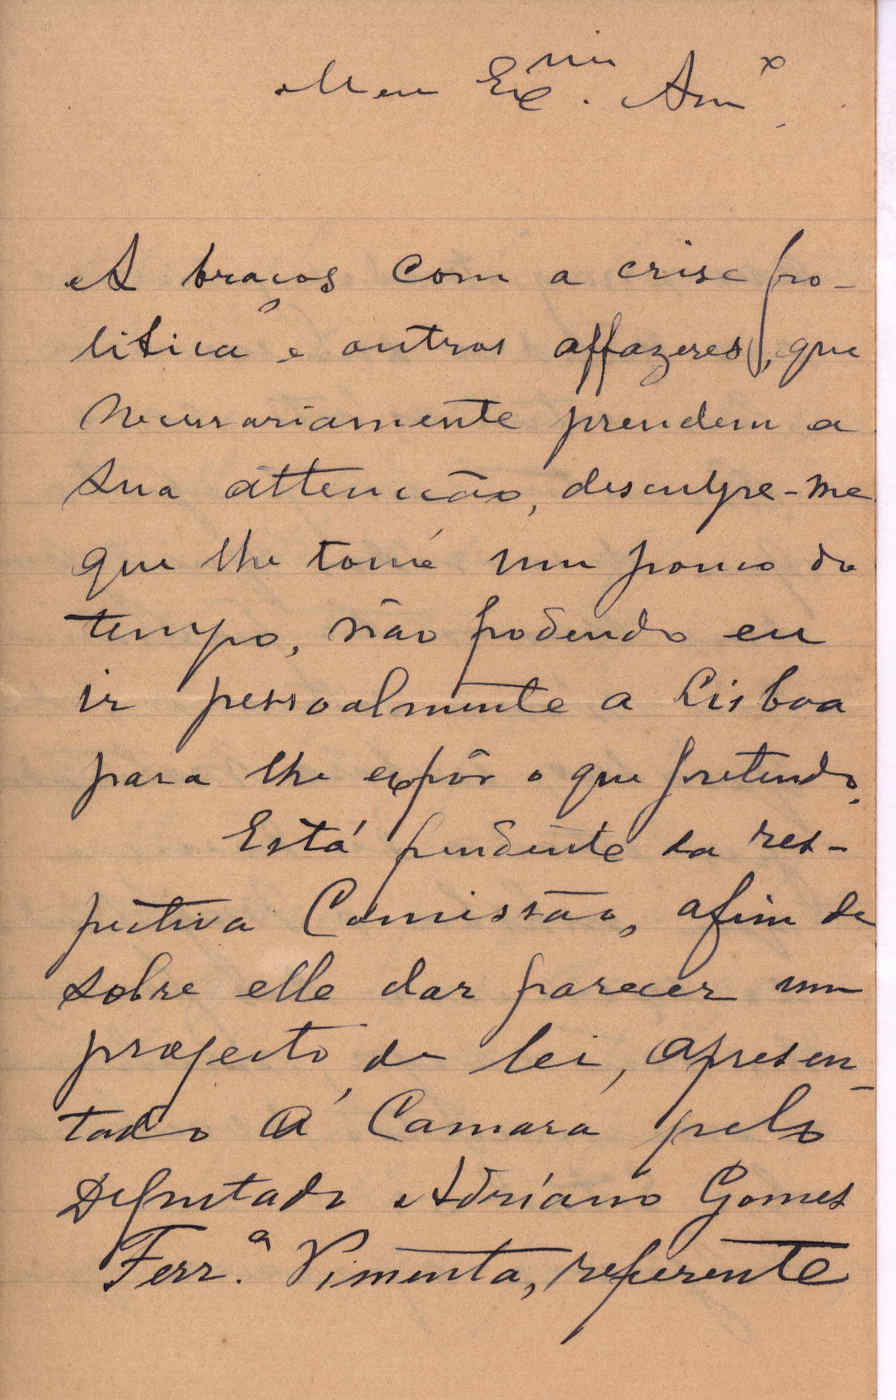 Meu Ex.mo Am.o
A braços com a crise po-
litica e outros affazeres, que
necessariamente prendem a
sua attenccão, desculpe-me
que lhe tome um pouco do
tempo, não podendo eu
ir pessoalmente a Lisboa
para lhe expôr o que pretendo.
Está pendente da res-
pectiva Comissão, afim de
sobre elle dar parecer um
projecto de lei, apresen-
tado á Camara pelo
Deputado Adriano Gomes
Ferr.a Pimenta, referente